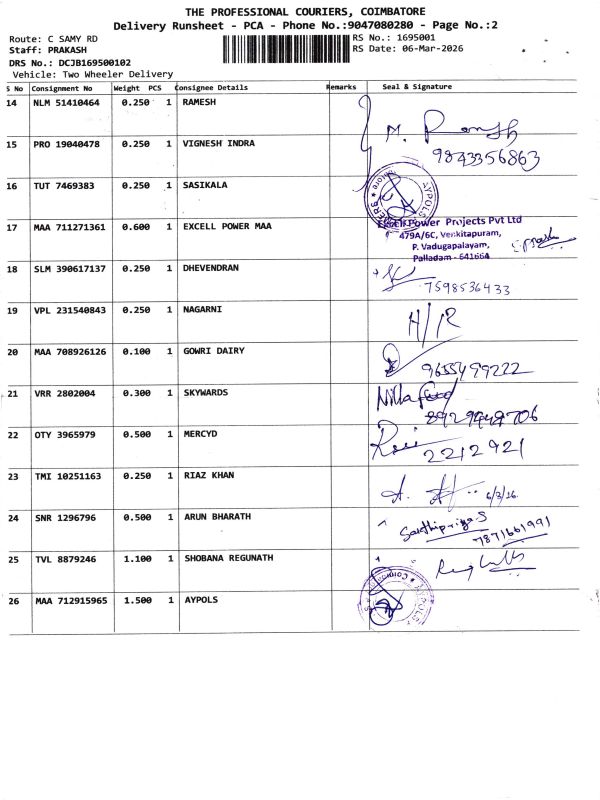 THE PROFESSIONAL COURIERS, COIMBATORE
Delivery Runsheet - PCA - Phone No.:9047080280 - Page No.:2
Route: C SAMY RD
RS No.: 1695001
Staff: PRAKASH
RS Date: 06-Mar-2026
DRS No.: DCJB169500102
Vehicle: Two Wheeler Delivery
S No Consignment No Weight PCS Consignee Details Remarks Seal & Signature
14 NLM 51410464 0.250 1 RAMESH
M. Ramesh
9843356863
15 PRO 19040478 0.250 1 VIGNESH INDRA
16 TUT 7469383 0.250 1 SASIKALA
AYPOLS
17 MAA 711271361 0.600 1 EXCELL POWER MAA
Excell Power Projects Pvt Ltd
479A/6C, Venkitapuram,
P. Vadugapalayam,
Palladam - 641664
18 SLM 390617137 0.250 1 DHEVENDRAN
7598536433
19 VPL 231540843 0.250 1 NAGARNI
H/R
20 MAA 708926126 0.100 1 GOWRI DAIRY
9655499222
21 VRR 2802004 0.300 1 SKYWARDS
22 OTY 3965979 0.500 1 MERCYD
2212921
23 TMI 10251163 0.250 1 RIAZ KHAN
6/3/26.
24 SNR 1296796 0.500 1 ARUN BHARATH
Sakthipriya S
7871661991
25 TVL 8879246 1.100 1 SHOBANA REGUNATH
26 MAA 712915965 1.500 1 AYPOLS
AYPOLS